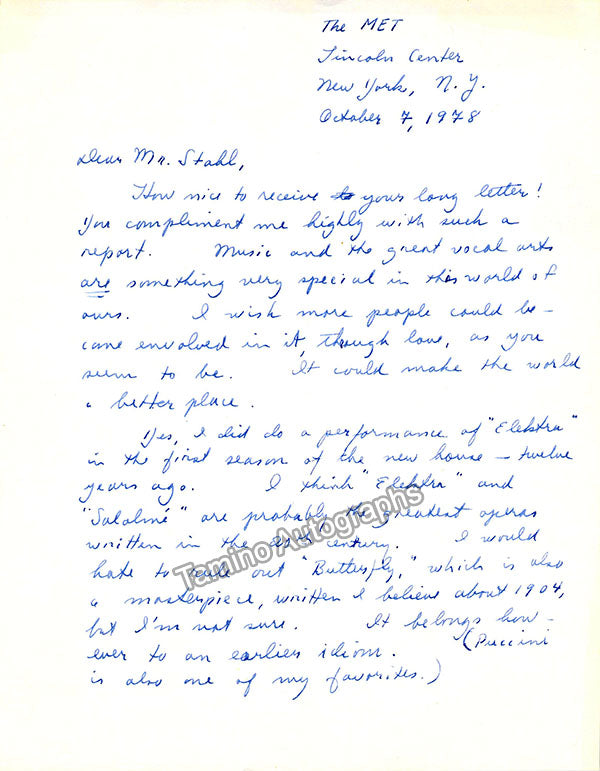 The MET
Lincoln Center
New York, N.Y.
October 7, 1978
Dear Mr. Stahl,
How nice to receive your long letter!
You compliment me highly with such a
report. Music and the great vocal arts
are something very special in this world of
ours. I wish more people could be-
come envolved in it, through love, as you
seem to be. It could make the world
a better place.
Yes, I did do a performance of "Elektra"
in the first season of the new house – twelve
years ago. I think "Elektra" and
"Salomé" are probably the greatest operas
written in the 20th century. I would
hate to rule out "Butterfly," which is also
a masterpiece, written I believe about 1904,
but I'm not sure. It belongs how-
ever to an earlier idiom. (Puccini
is also one of my favorites.)
Tamino Autographs